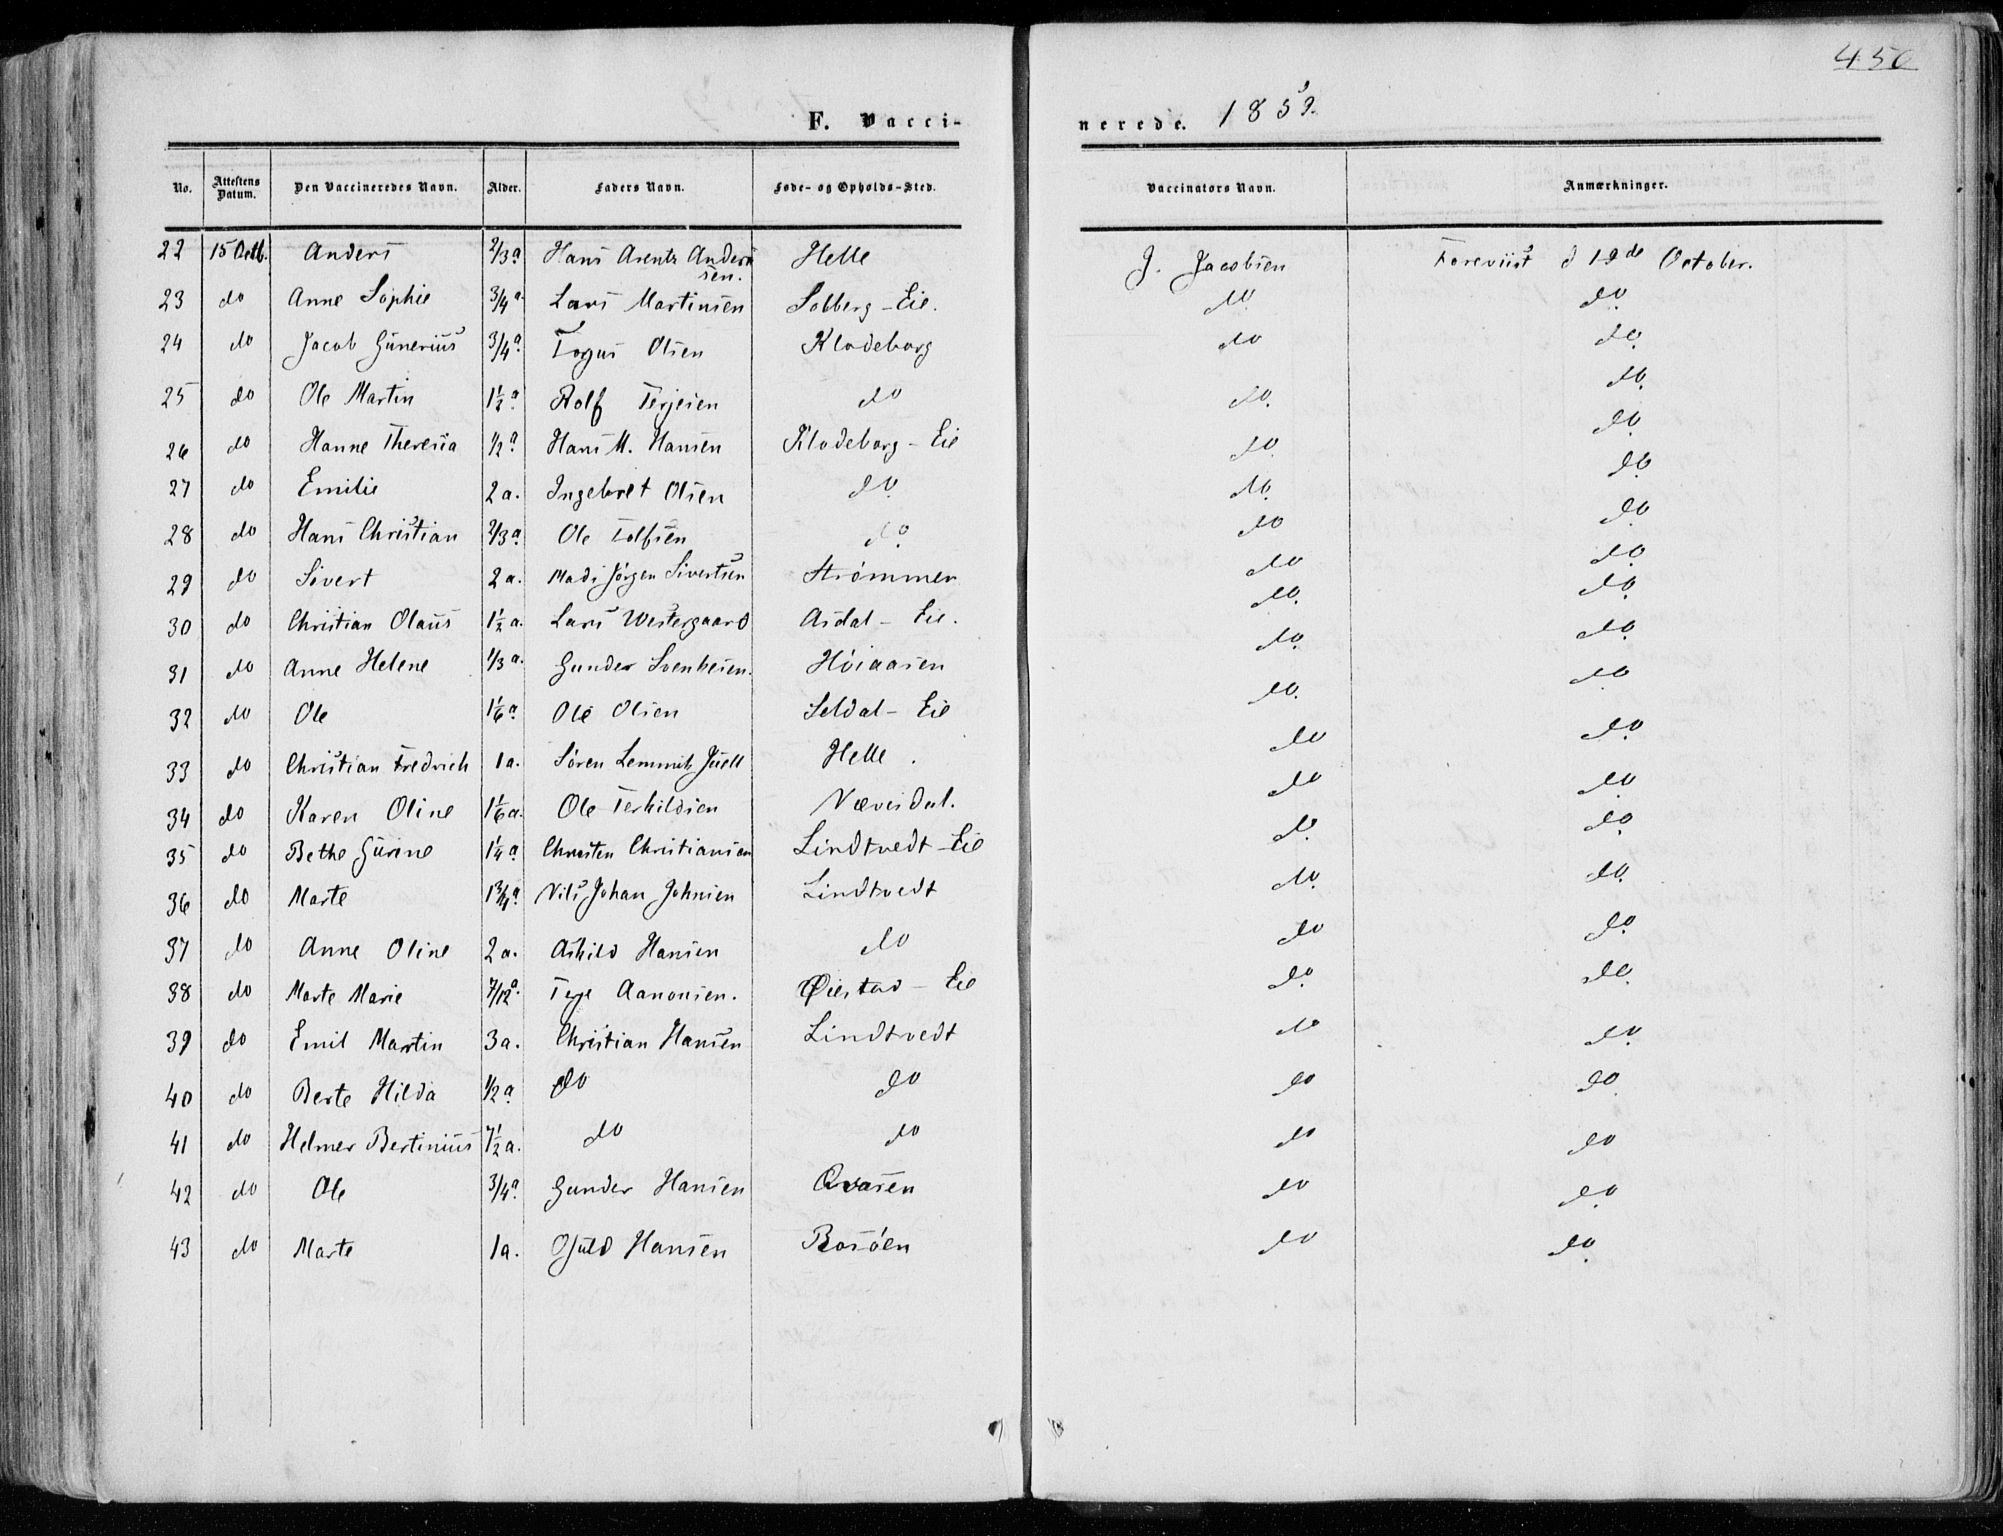 450
F. Vacci-
nerede. 1859.
No. Attestens Datum. Den Vaccineredes Navn. Alder. Faders Navn. Føde- og Opholds-Sted. Vaccinators Navn. Anmærkninger.
22 15 Octb. Anders 2/3 a. Hans Arentz Andersen. Helle J. Jacobsen Foreviist d 19de October.
23 do Anne Sophie 3/4 a. Lars Martinsen Solberg-Eie. do. do.
24 do Jacob Gunerius 3/4 a. Torjus Olsen Klodeborg do do.
25 do Ole Martin 1 1/2 a. Rolf Terjesen do do. do.
26 do Hanne Theresia 1/2 a. Hans M. Hansen Klodeborg-Eie do. do.
27 do Emilie 2 a. Ingebret Olsen do. do. do.
28 do Hans Christian 2/3 a. Ole Tolfsen do. do do.
29 do Sivert 2 a. Mads Jørgen Sivertsen Strømmen do do.
30 do Christian Olaus 1 1/2 a. Lars Westergaard Asdal-Eie. do. do.
31 do Anne Helene 1/3 a. Gunder Svenkesen. Høiaasen do. do.
32 do Ole 1 1/6 a. Ole Olsen Seldal-Eie do. do.
33 do Christian Fredrich 1 a. Søren Lemmich Juell Helle. do do.
34 do Karen Oline 1 1/6 a. Ole Terkildsen Næversdal. do do.
35 do Bethe Gurine 1 1/4 a. Christen Christiansen Lindtvedt-Eie do. do.
36 do Marte 1 3/4 a. Nils Johan Johnsen Lindtvedt do. do.
37 do Anne Oline 2 a. Askild Hansen do do do.
38 do Marte Marie 7/12 a. Terje Aanonsen. Øiestad-Eie do. do.
39 do Emil Martin 3 a. Christian Hansen Lindtvedt do do.
40 do Berte Hilda 1/2 a. do do do do.
41 do Helmer Bertinius 7 1/2 a. do do do do
42 do Ole 3/4 a. Gunder Hansen Qvasen do do.
43 do Marte 1 a. Ojuld Hansen Bosøen do do.